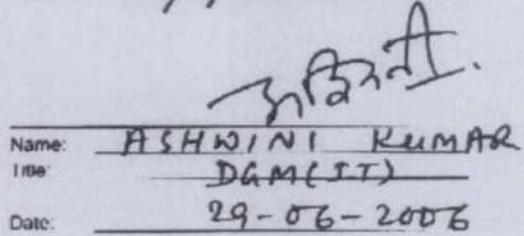 अश्विनी.
Name: ASHWINI KUMAR
Title: DGM(IT)
Date: 29-06-2006